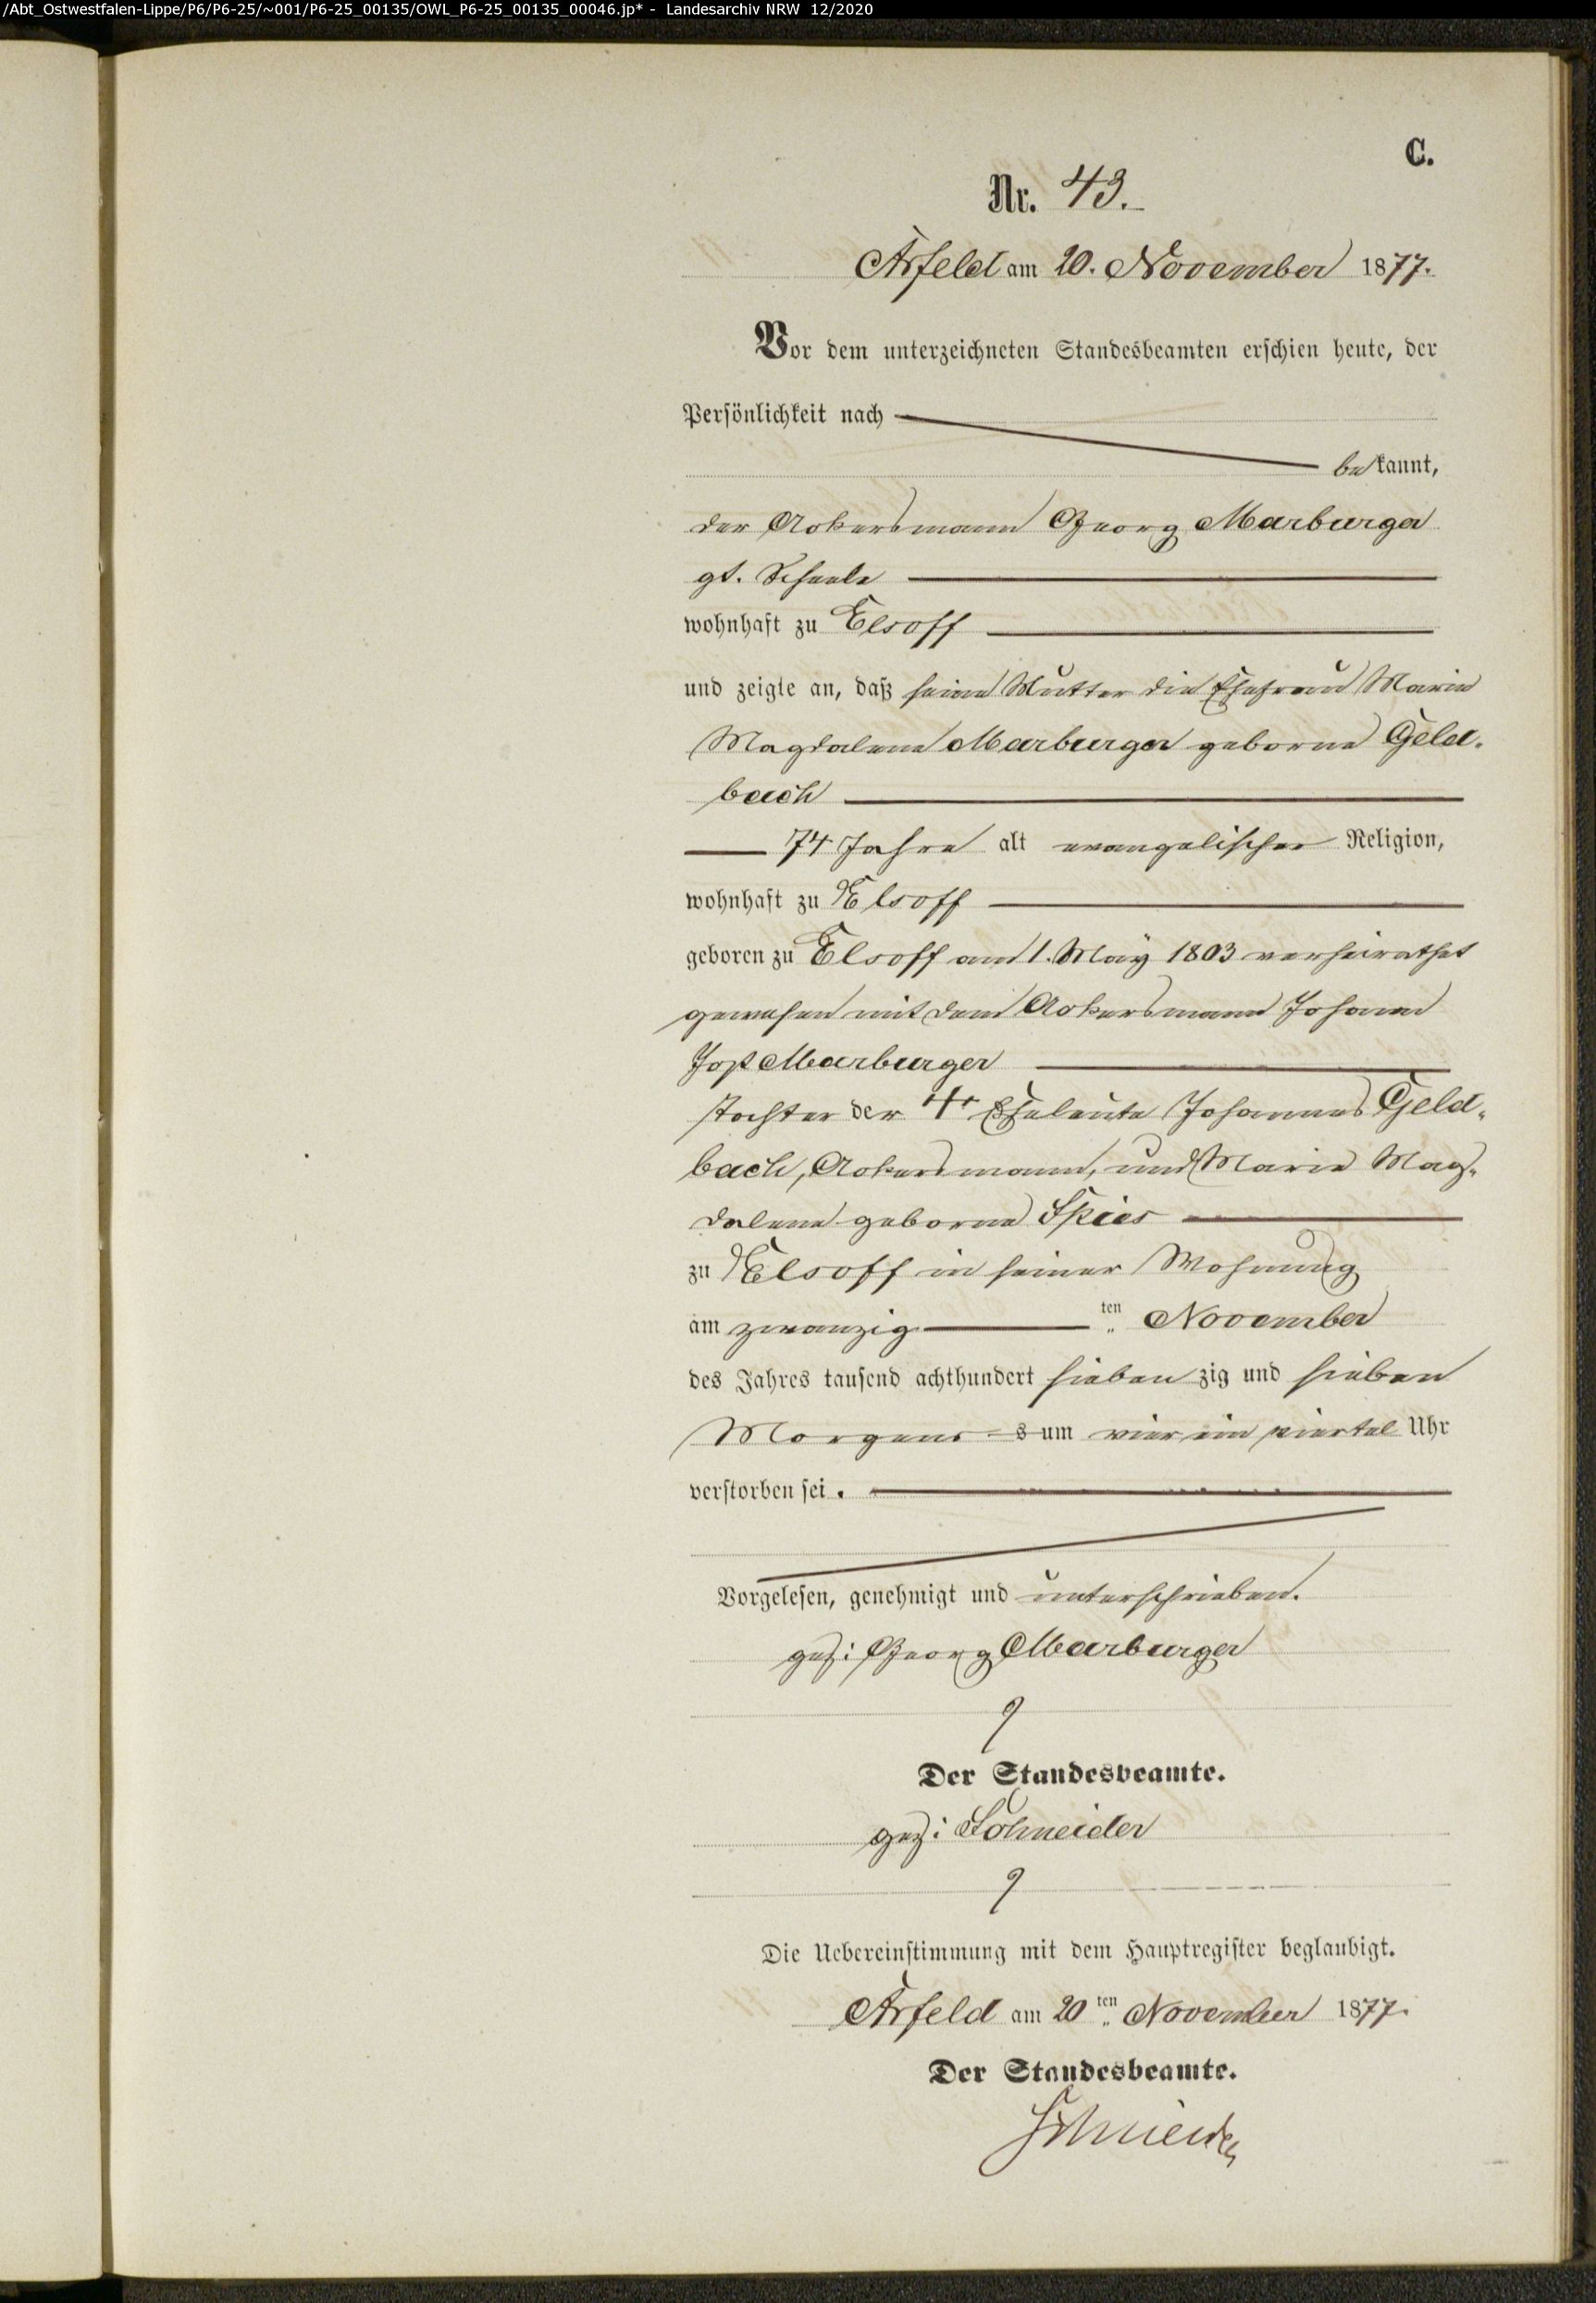 /Abt_Ostwestfalen-Lippe/P6/P6-25/~001/P6-25_00135/OWL_P6-25_00135_00046.jp* - Landesarchiv NRW 12/2020
C.
Nr. 43.
Arfeld am 20. November 1877.
Vor dem unterzeichneten Standesbeamten erschien heute, der
Persönlichkeit nach
bekannt,
der Ackersmann Georg Marburger
gt. Scheele
wohnhaft zu Elsoff
und zeigte an, daß seine Mutter die Ehefrau Marie
Magdalene Marburger geborne Geld-
bach
74 Jahre alt evangelischer Religion,
wohnhaft zu Elsoff
geboren zu Elsoff am 1. May 1803 verheirathet
gewesen mit dem Ackersmann Johann
Jost Marburger
Tochter der Eheleute Johannes Geld-
bach, Ackersmann, und Marie Mag-
dalene geborne Spies
zu Elsoff in seiner Wohnung
am zwanzig ten November
des Jahres tausend achthundert siebenzig und sieben
Morgens s um vier ein viertel Uhr
verstorben sei.
Vorgelesen, genehmigt und unterschrieben.
gez: Georg Marburger
Der Standesbeamte.
gez: Schneider
Die Uebereinstimmung mit dem Hauptregister beglaubigt.
Arfeld am 20ten November 1877.
Der Standesbeamte.
Schneider